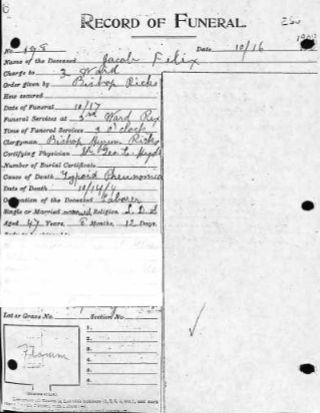 RECORD OF FUNERAL.
No. 198 Date 10/16 190
Name of the Deceased Jacob Felix
Charge to 3 Ward
Order given by Bishop Ricks
How secured
Date of Funeral 10/17
Funeral Services at 3rd Ward Rex
Time of Funeral Services 2 O'clock
Clergyman Bishop Hyrum Ricks
Certifying Physician Dr Geo. L. Hyde
Number of Burial Certificate
Cause of Death Typoid Pneumonia
Date of Death 10/14/
Occupation of the Deceased Laborer
Single or Married Religion L.D.S
Aged 47 Years, 8 Months, 12 Days.
Lot or Grave No. Section No.
1.
2.
3.
4.
5.
6.